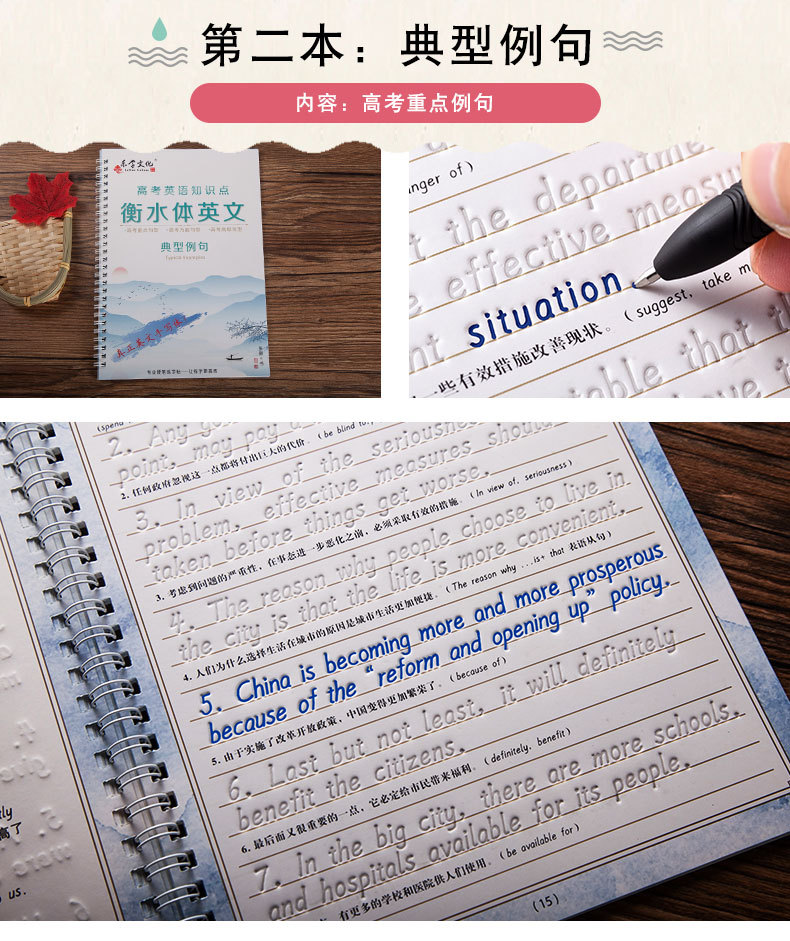 第二本：典型例句
内容：高考重点例句
乐学文化
高考英语知识点
衡水体英文
典型例句
Typical Examples
真正英文手写体
anger of)
t the departme
e effective measu
nt situation.
(suggest, take m
一些有效措施改善现状。
able that t
2. Any go
point, may pay a
(be blind to,
2. 任何政府忽视这一点都将付出巨大的代价。
3. In view of the seriousnes
problem, effective measures should
taken before things get worse.
3. 考虑到问题的严重性，在事态进一步恶化之前，必须采取有效的措施。(In view of, seriousness)
4. The reason why people choose to live in
the city is that the life is more convenient.
4. 人们为什么选择生活在城市的原因是城市生活更加便捷。(The reason why ...is+ that 表语从句)
5. China is becoming more and more prosperous
because of the “reform and opening up” policy.
5. 由于实施了改革开放政策，中国变得更加繁荣了。(because of)
6. Last but not least, it will definitely
benefit the citizens.
6. 最后而又很重要的一点，它必定给市民带来福利。(definitely, benefit)
7. In the big city, there are more schools,
and hospitals available for its people.
有更多的学校和医院供人们使用。(be available for)
(15)
tly
高了
us.